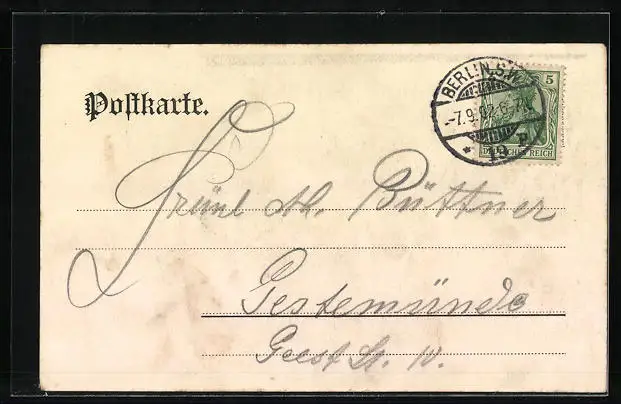 Postkarte.
BERLIN, S.W.
-7.9.02.6-7N.
* 19 P
5
DEUTSCHES REICH
Fräul. M. Büttner
Gestemünde
Geest St. 10.